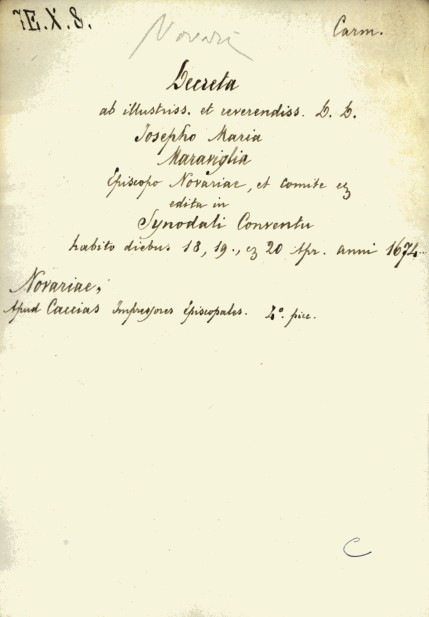 7E.X.8.
Novara
Carm.
Decreta
ab illustriss. et reverendiss. D. D.
Josepho Maria
Maraviglia
Episcopo Novariae, et comite &
edita in
Synodali Conventu
habito diebus 18, 19., & 20 Apr. anni 1674.
Novariae,
Apud Caccias Impressores Episcopales. 4°. picc.
C